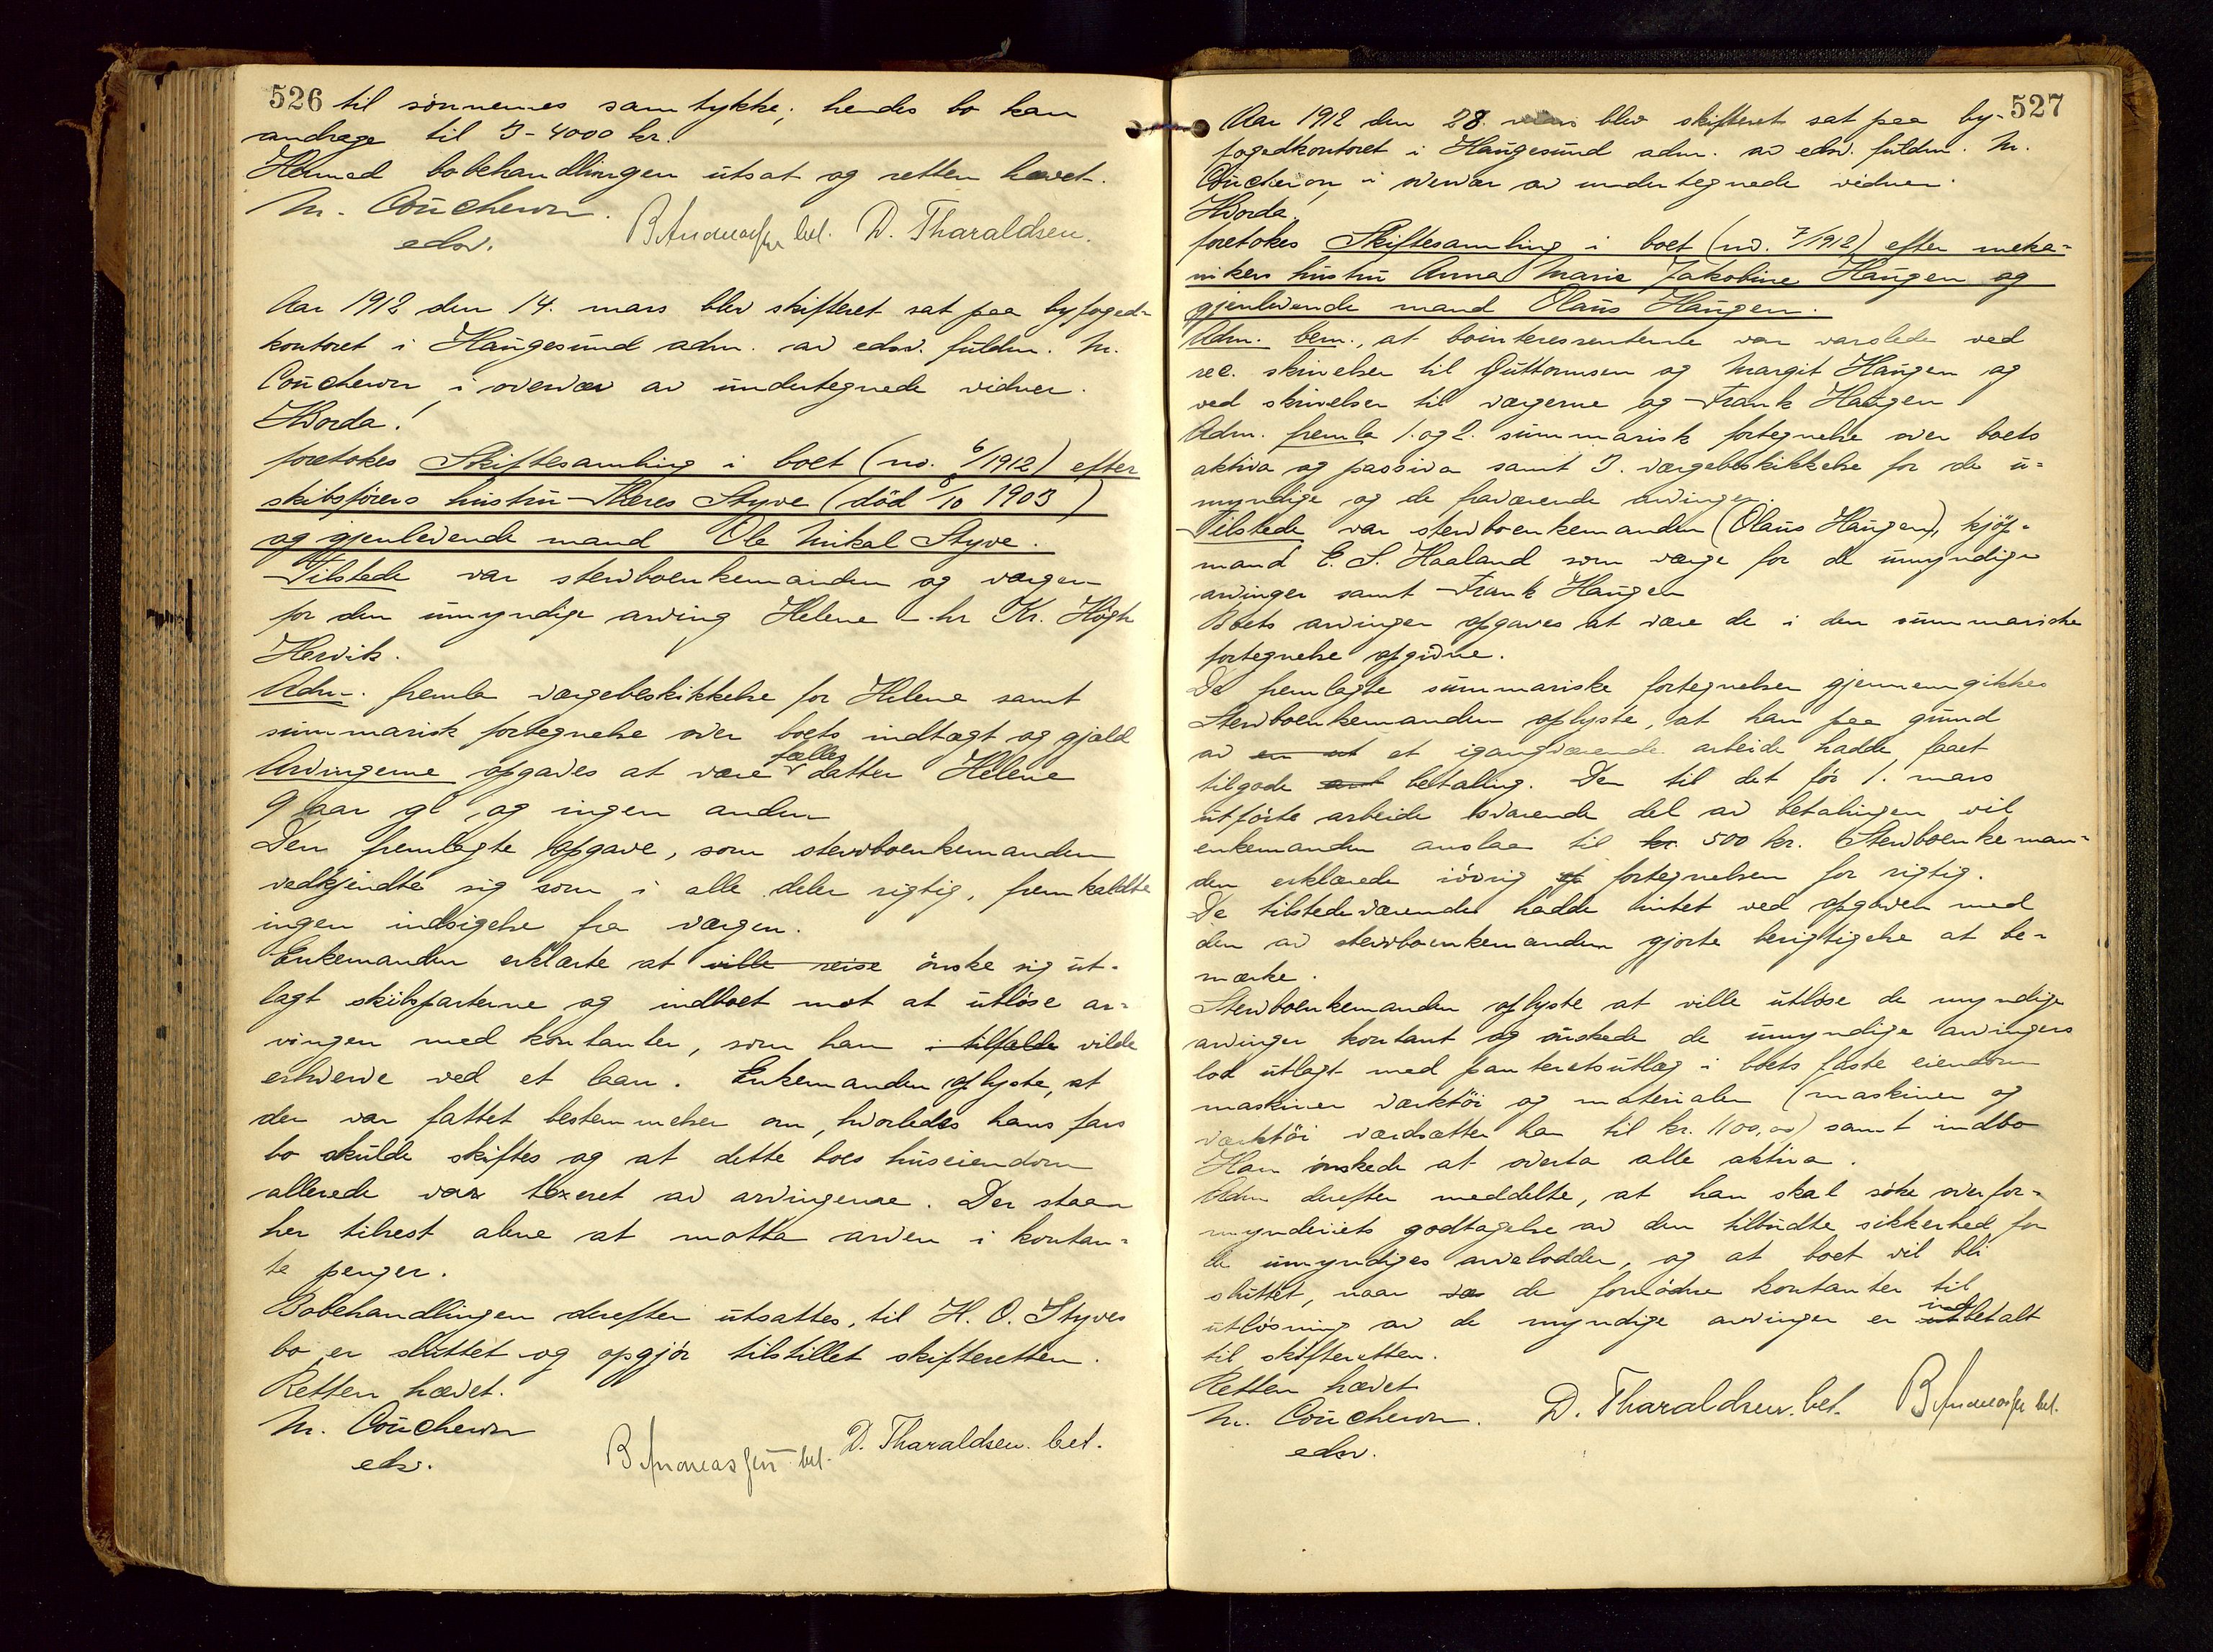 526 til sönnernes samtykke; hendes bo kan
andrage til 3-4000 kr.
Hermed bobehandlingen utsat og retten hævet.
M. Coucheron.
edsv.
B. Andreassen bet. D. Tharaldsen.
Aar 1912 den 14. mars blev skifteret sat paa byfoged-
kontoret i Haugesund adm. av edsv. fuldm. M.
Coucheron i overvær av undertegnede vidner.
Hvorda!
foretokes Skiftesamling i boet (no. 6/1912) efter
skibsförers hustru Theres Styve (död 8/10 1903)
og gjenlevende mand Ole Mikal Styve.
Tilstede var stervboenkemanden og værgen
for den umyndige arving Helene - hr Kr. Högh
Hervik.
Adm. fremla værgebeskikkelse for Helene samt
summarisk fortegnelse over boets indtægt og gjæld
Arvingerne opgaves at være fælles datter Helene
9 aar gl, og ingen anden
Den fremlagte opgave, som stervboenkemanden
vedkjendte sig som i alle deler rigtig, fremkaldte
ingen indsigelse fra værgen.
Enkemanden erklærte at ville reise önske sig ut-
lagt skibsparterne og indboet mot at utlöse ar-
vingen med kontanter, som han i tilfælde vilde
erhverve ved et laan. Enkemanden oplyste, at
der var fattet bestemmelser om, hvorledes hans fars
bo skulde skiftes og at dette boes huseiendom
allerede var taxeret av arvingerne. Der staar
her tilrest alene at motta arven i kontan-
te penger.
Bobehandlingen derefter utsattes, til H. O. Styves
bo er sluttet og opgjör tilstillet skifteretten.
Retten hævet.
M. Coucheron
edsv.
B. Andreassen bet. D. Tharaldsen. bet.
527
Aar 1912 den 28. mars blev skifteret sat paa by-
fogedkontoret i Haugesund adm. av edsv. fuldm. M.
Coucheron, i overvær av undertegnede vidner.
Hvorda!
foretokes Skiftesamling i boet (no. 7/1912) efter meka-
nikers hustru Anna Marie Jakobine Haugen og
gjenlevende mand Olaus Haugen.
Adm. bem., at bointeressenterne var varslede ved
rec. skrivelser til Guttormsen og Margit Haugen og
ved skrivelser til værgerne og Frank Haugen
Adm. fremla 1. og 2. summarisk fortegnelse over boets
aktiva og passiva samt 3. værgebeskikkelse for de u-
myndige og de fraværende arvinger.
Tilstede var stervboenkemanden (Olaus Haugen), kjöp-
mand E. S. Haaland som værge for de umyndige
arvinger samt Frank Haugen
Boets arvinger opgaves at være de i den summariske
fortegnelse opgivne.
De fremlagte summariske fortegnelser gjennemgikkes
Stervboenkemanden oplyste, at han paa grund
av en ut et igangværende arbeide hadde faaet
tilgode betaling. Den til det för 1. mars
utförte arbeide svarende del av betalingen vil
enkemanden anslaa til kr. 500 kr. Stervboenkeman-
den erklærede iövrig fortegnelsen for rigtig.
De tilstedeværende hadde intet ved opgaven med
den av stervboenkemanden gjorte berigtigelse at be-
merke.
Stervboenkemanden oplyste at ville utlöse de myndige
arvinger kontant og önskede de umyndige arvingers
lod utlagt med panteretsutlæg i boets faste eiendom
maskiner værktöi og materialer (maskiner og
værktöi værdsætter han til kr. 1100,00) samt indbo
Han önskede at overta alle aktiva.
Adm derefter meddelte, at han skal söke overfor-
mynderiets godtagelse av den tilbudte sikkerhed for
de umyndiges arvelodder, og at boet vil bli
sluttet, naar de fornödne kontanter til
utlösning av de myndige arvinger er indbetalt
til skifteretten.
Retten hævet
M. Coucheron.
edsv.
D. Tharaldsen. bet. B. Andreassen bet.